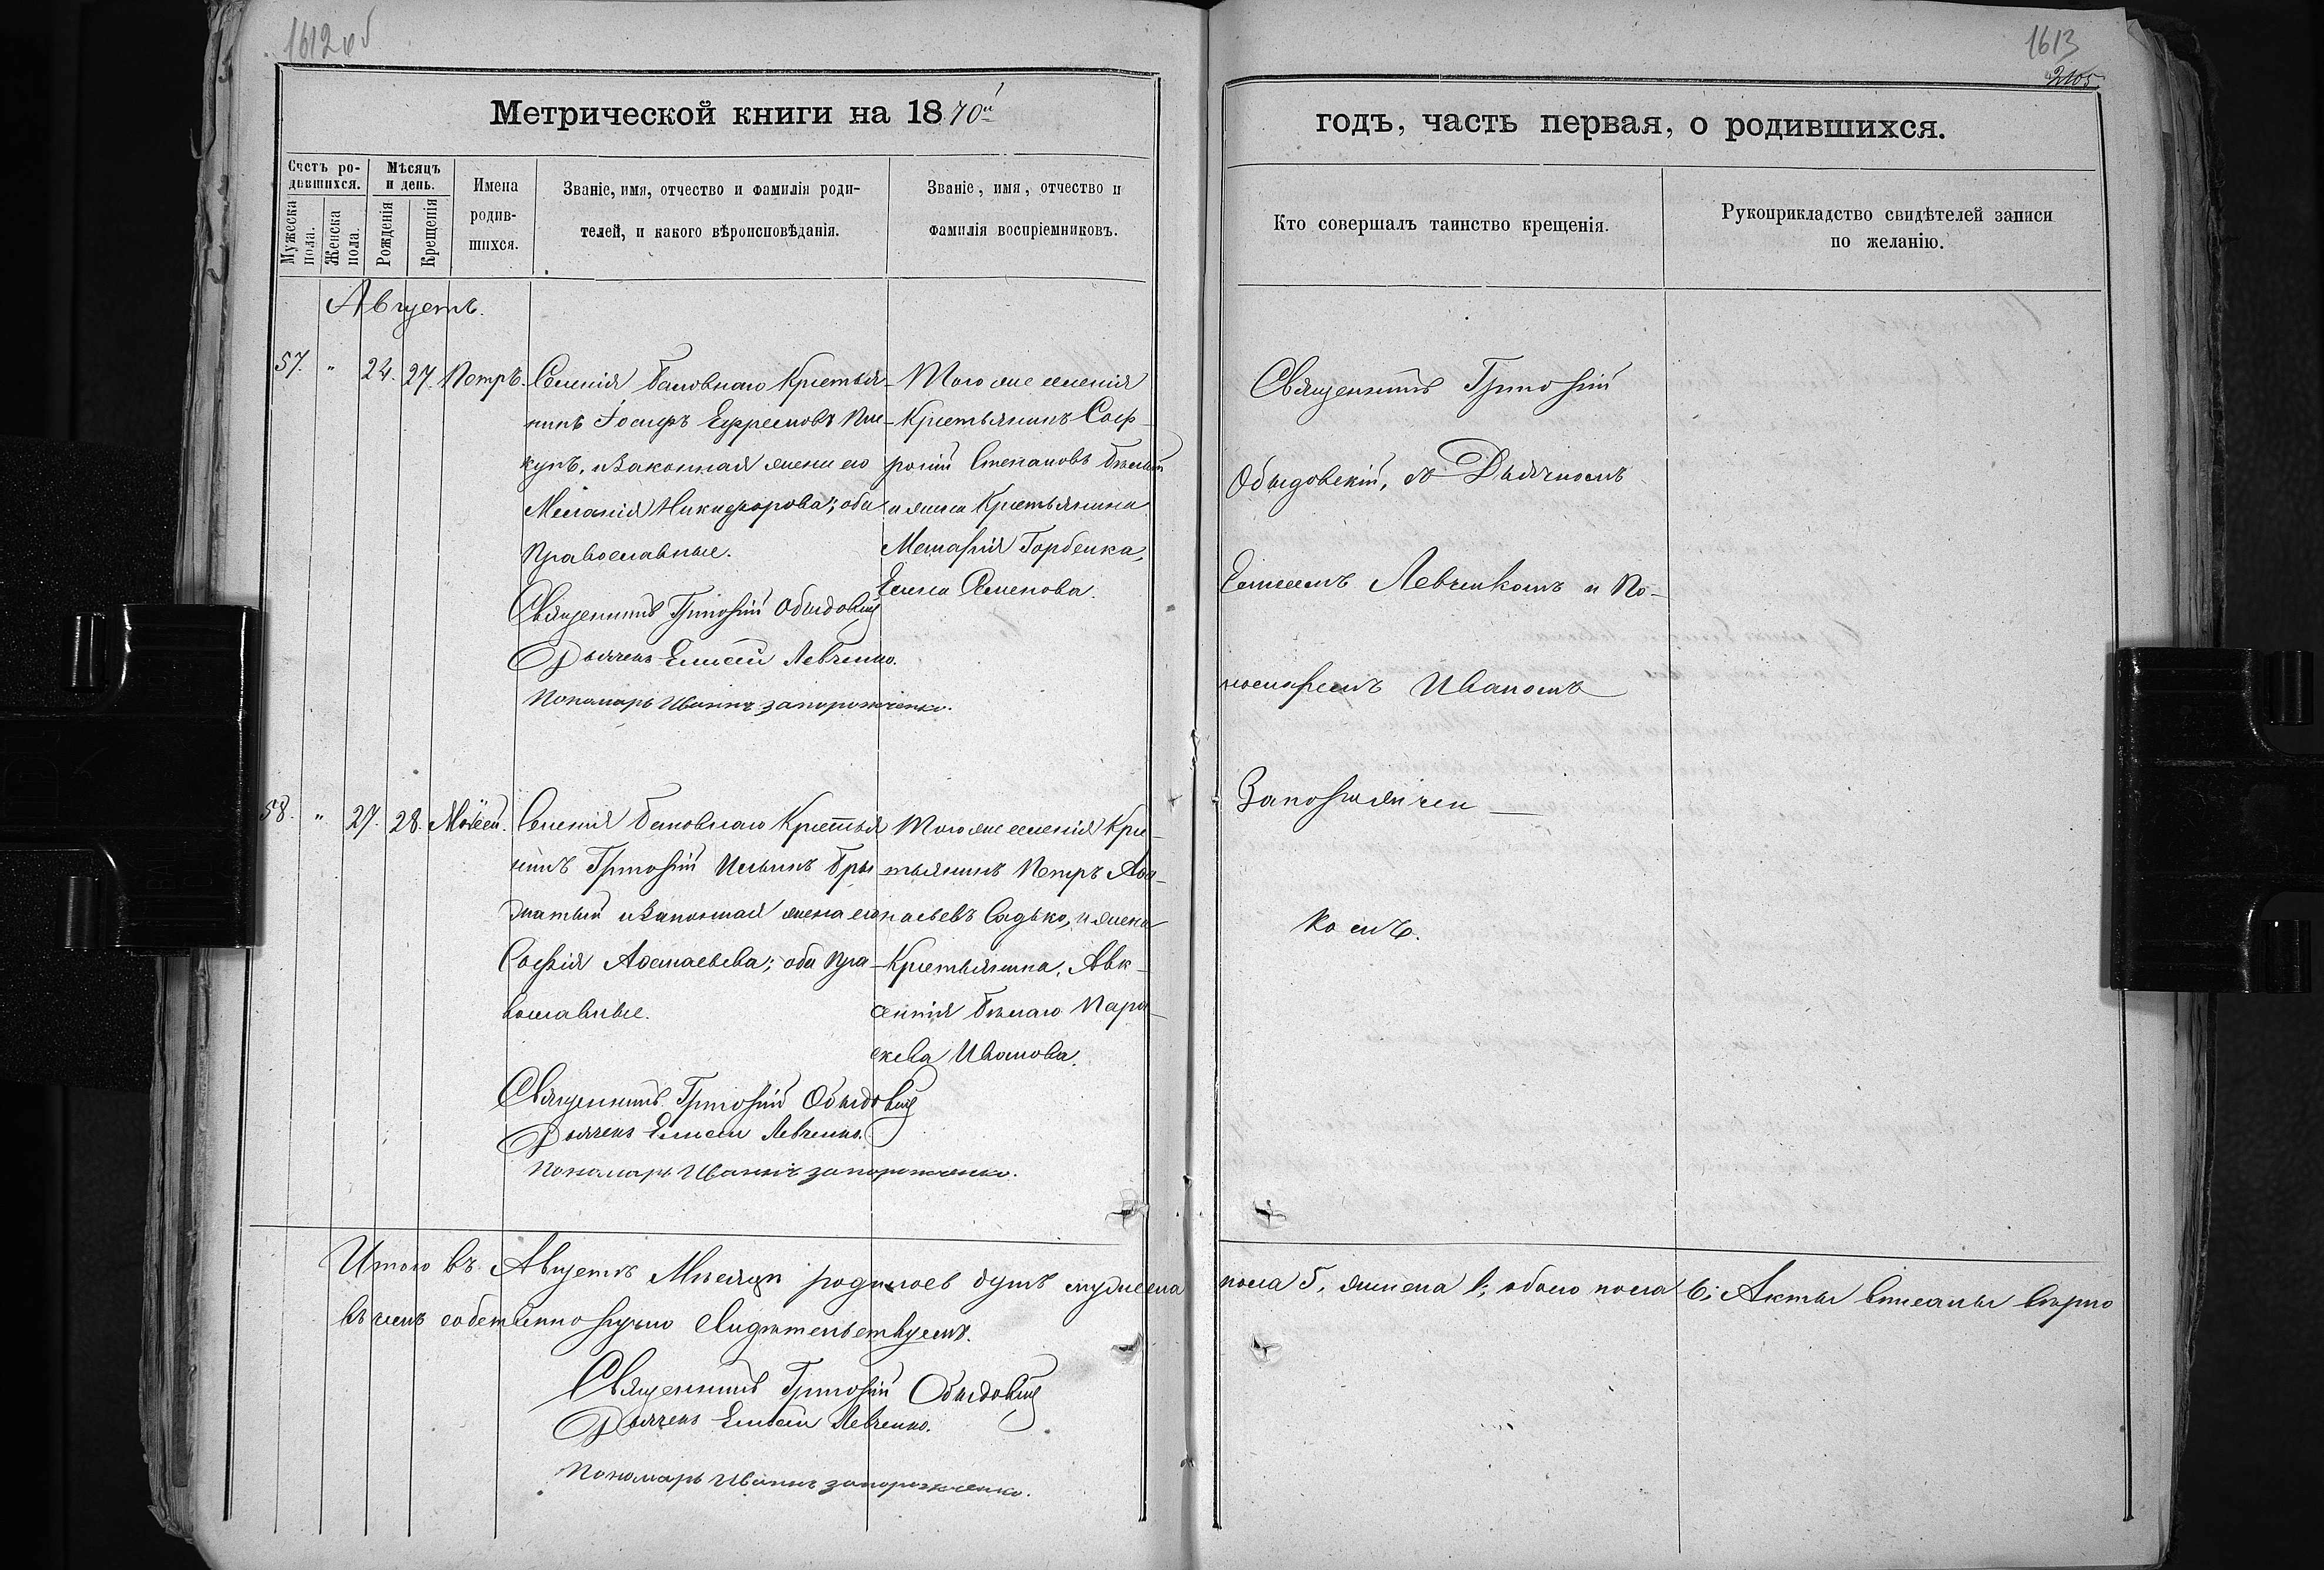 1612 об
1613
2105
Метрической книги на 1870й
годъ, часть первая, о родившихся.
Счетъ ро-
дившихся.
Мужеска
пола.
Женска
пола.
Мѣсяцъ
и день.
Рожденія
Крещенія
Имена
родив-
шихся.
Званіе, имя, отчество и фамилія роди-
телей, и какого вѣроисповѣданія.
Званіе, имя, отчество и
фамилія воспріемниковъ.
Кто совершалъ таинство крещенія.
Рукоприкладство свидѣтелей записи
по желанію.
Августъ.
57. " 24. 27. Петръ.
Селенія Баловнаго Крестья-
нинъ Іосифъ Ефремовъ
и законная жена его
Меланія Никифорова; оба
Православные.
Священникъ Григорій Обыдовскій
Дьячекъ Елисей Левченко.
Пономарь Иваннъ запорожченко.
Того же селенія
Крестьянинъ Соф-
роній Степановъ Бѣлый
и жена Крестьянина
Горбенка,
Елена Семенова.
Священникъ Григорій
Обыдовскій, съ Дьячкомъ
Елисеемъ Левченкомъ и По-
номаремъ Иваномъ
Запорожчен-
комъ.
58. " 27. 28. Моѵсей.
Селенія Баловнаго Крестья
нинъ Григорій Ильинъ Бры
датый и Законная жена его
Софія Аѳанасьева; оба Пра-
вославные.
Священникъ Григорій Обыдовскій
Дьячекъ Елисей Левченко.
Пономарь Иваннъ запорожченко.
Того же селенія Кре-
стьянинъ Петръ Аѳа-
насьевъ Садько, и жена
Крестьянина, Авк-
сентія Бѣлаго Пара-
скева Иванова.
Итого въ Августѣ Мѣсяцѣ родилось душъ мужеска пола 5, женска 1; обоего пола 6; Акты вписаны вѣрно
въ чемъ собственноручно Свидѣтельствуемъ.
Священникъ Григорій Обыдовскій
Дьячекъ Елисей Левченко.
Пономарь Иваннъ запорожченко.